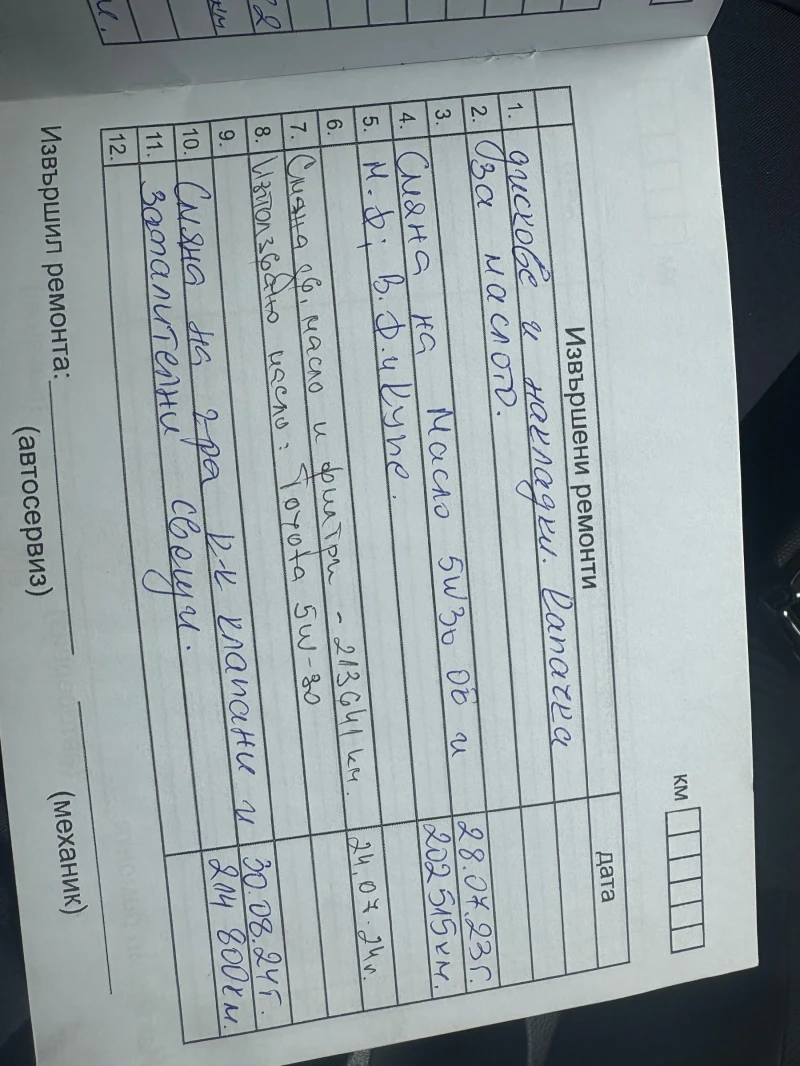 км
Извършени ремонти дата
1. дискове и накладки. Капачка
2. за маслото.
3. Смяна на Масло 5W30 ОБ и 28.07.23г.
4. М.Ф; В.Ф. и купе. 202 515км.
5.
6. Смяна дв. масло и филтри - 213641 км. 24.07.24г.
7. Използвано масло: Toyota 5W-30
8.
9. Смяна на г-ра к-к клапани и 30.08.24г.
10. запалителни свещи. 214 800км.
11.
12.
Извършил ремонта:
(автосервиз) (механик)